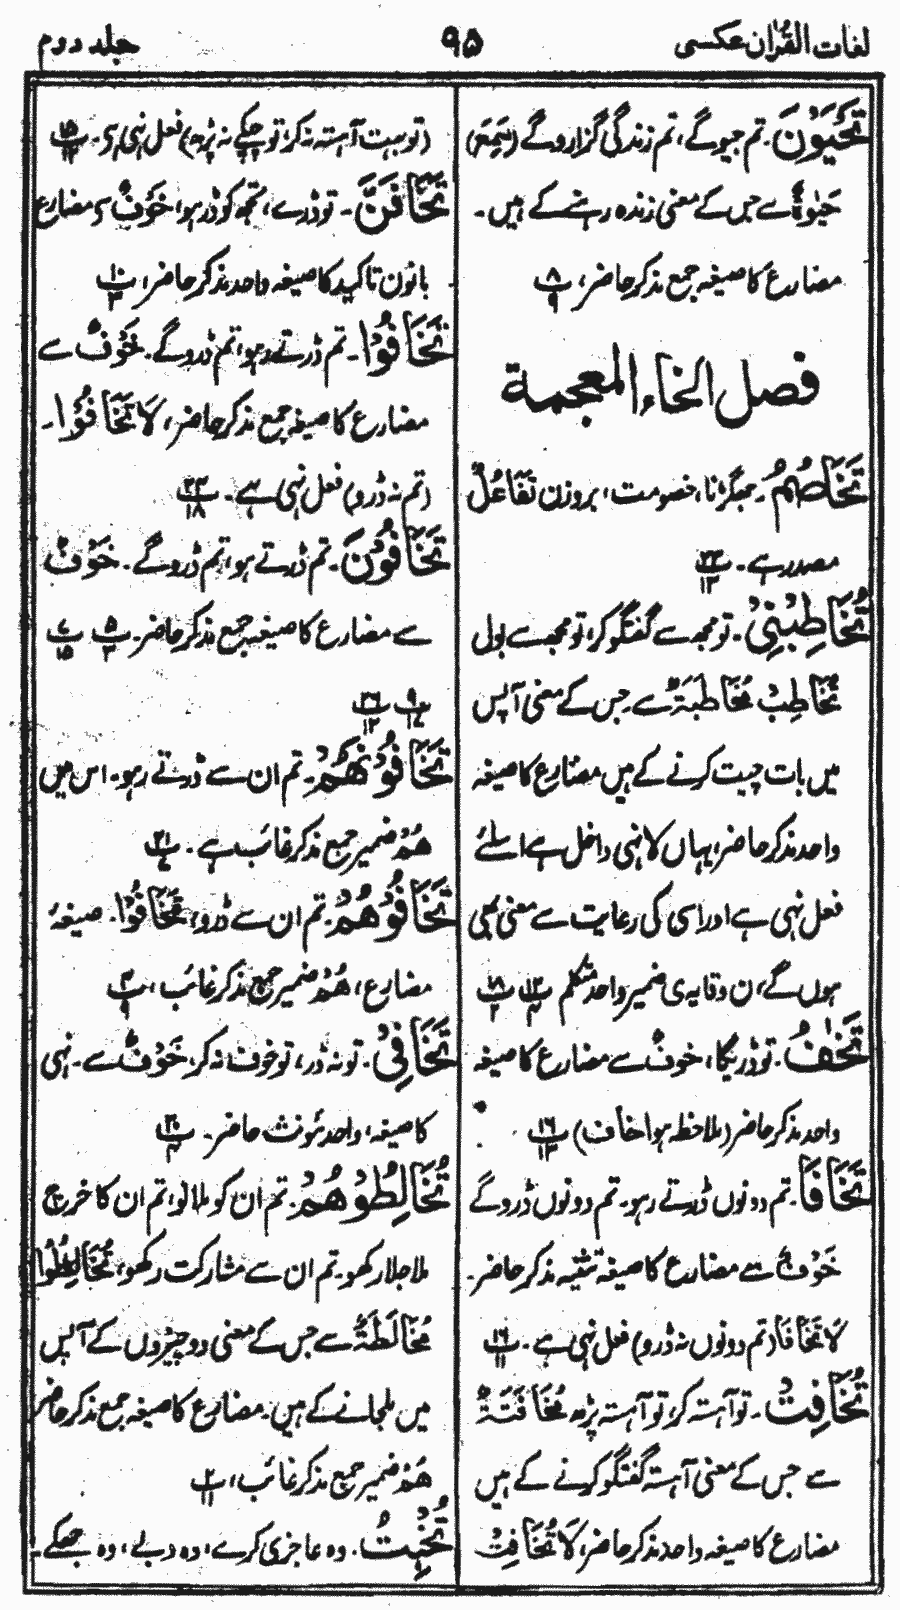 لغات القرآن عکسی
۹۵
جلد دوم
تَحْيَوْنَ۔ تم جیوگے، تم زندگی گزاروگے (سَمِعَ)
حَیٰوةٌ سے جس کے معنی زندہ رہنے کے ہیں۔
مضارع کا صیغہ جمع مذکر حاضر، ۸/۹
فصل الخاء المعجمة
تَخَاصُمُ۔ جھگڑنا، خصومت، بروزن تَفَاعُلٌ
مصدر ہے۔ ۲۳/۱۳
تُخَاطِبْنِیْ۔ تو مجھ سے گفتگو کر، تو مجھ سے بول
تُخَاطِبْ مُخَاطَبَةٌ سے جس کے معنی آپس
میں بات چیت کرنے کے ہیں مضارع کا صیغہ
واحد مذکر حاضر، یہاں لا نہی داخل ہے اسلئے
فعل نہی ہے اور اسی کی رعایت سے معنی بھی
ہوں گے، ن وقایہ ی ضمیر واحد متکلم ۱۲/۴ ۱۸/۲
تَخٰفُ۔ تو ڈریگا، خوفٌ سے مضارع کا صیغہ
واحد مذکر حاضر (ملاحظہ ہو اخاف) ۱۶/۱۳
تَخَافَا۔ تم دونوں ڈرتے رہو۔ تم دونوں ڈروگے
خَوْفٌ سے مضارع کا صیغہ تثنیہ مذکر حاضر۔
لَا تَخَافَا (تم دونوں نہ ڈرو) فعل نہی ہے۔ ۱۶/۱۱
تُخَافِتْ۔ تو آہستہ کر، تو آہستہ پڑھ مُخَافَتَةٌ
سے جس کے معنی آہستہ گفتگو کرنے کے ہیں
مضارع کا صیغہ واحد مذکر حاضر، لَا تُخَافِتْ
(تو بہت آہستہ نہ کر، تو چپکے نہ پڑھ) فعل نہی ہے۔ ۱۵/۱۲
تَخَافَنَّ۔ تو ڈرے، تجھ کو ڈر ہو، خَوْفٌ سے مضارع
بانون تاکید کا صیغہ واحد مذکر حاضر، ۱۰/۳
تَخَافُوْا۔ تم ڈرتے رہو، تم ڈروگے۔ خَوْفٌ سے
مضارع کا صیغہ جمع مذکر حاضر، لَا تَخَافُوْا۔
(تم نہ ڈرو) فعل نہی ہے۔ ۲۴/۱۸
تَخَافُوْنَ۔ تم ڈرتے ہو، تم ڈروگے۔ خَوْفٌ
سے مضارع کا صیغہ جمع مذکر حاضر۔ ۵/۲ ۷/۱۵
۹/۱۷ ۲۶/۱۲
تَخَافُوْنَهُمْ۔ تم ان سے ڈرتے رہو۔ اس میں
هُمْ ضمیر جمع مذکر غائب ہے۔ ۲۱/۷
تَخَافُوْهُمْ۔ تم ان سے ڈرو، تَخَافُوْا۔ صیغۂ
مضارع، هُمْ ضمیر جمع مذکر غائب، ۴/۹
تَخَافِیْ۔ تو نہ ڈر، تو خوف نہ کر، خَوْفٌ سے۔ نہی
کا صیغہ، واحد مؤنث حاضر۔ ۲۰/۴
تُخَالِطُوْهُمْ۔ تم ان کو ملا لو، تم ان کا خرچ
ملا جلا رکھو۔ تم ان سے مشارکت رکھو، تُخَالِطُوْا
مُخَالَطَةٌ سے جس کے معنی دو چیزوں کے آپس
میں ملجانے کے ہیں۔ مضارع کا صیغہ جمع مذکر حاضر
هُمْ ضمیر جمع مذکر غائب، ۲/۱۱
تُخْبِتَ۔ وہ عاجزی کرے، وہ دبے، وہ جھکے۔